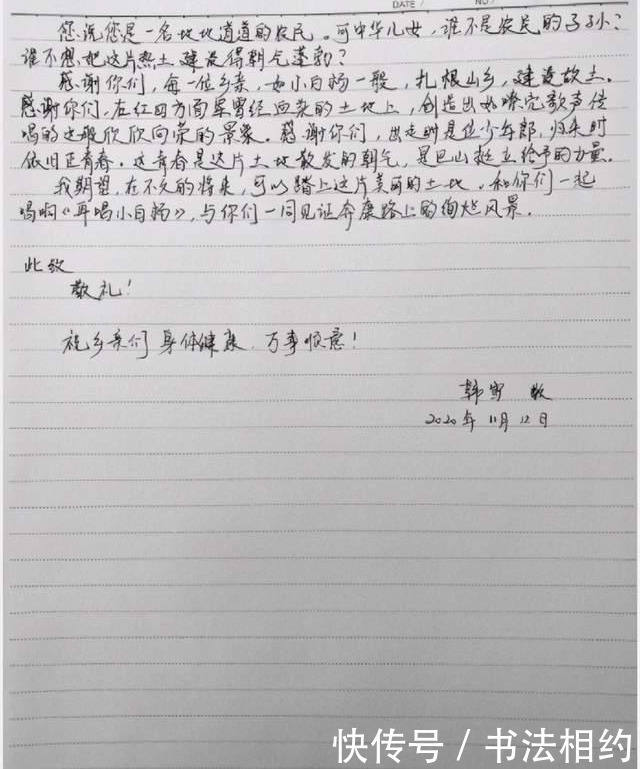 DATE / NO /
您说您是一名地地道道的农民。可中华儿女，谁不是农民的子子孙？
谁不想把这片热土建设得朝气蓬勃？
感谢你们，每一位乡亲，如小白杨一般，扎根山乡，建设故土。
感谢你们，在红四方面军曾经血染的土地上，创造出如嘹亮歌声传
唱的这般欣欣向荣的景象。感谢你们，出走时是位少年郎，归来时
依旧正青春。这青春是这片土地散发的朝气，是巴山挺立给予的力量。
我期望，在不久的将来，可以踏上这片美丽的土地，和你们一起
唱啊《再唱小白杨》，与你们一同见证奔康路上的绚烂风景。
此致
敬礼！
祝乡亲们身体健康，万事顺意！
韩雪 敬
2020年11月12日
快传号 / 书法相约